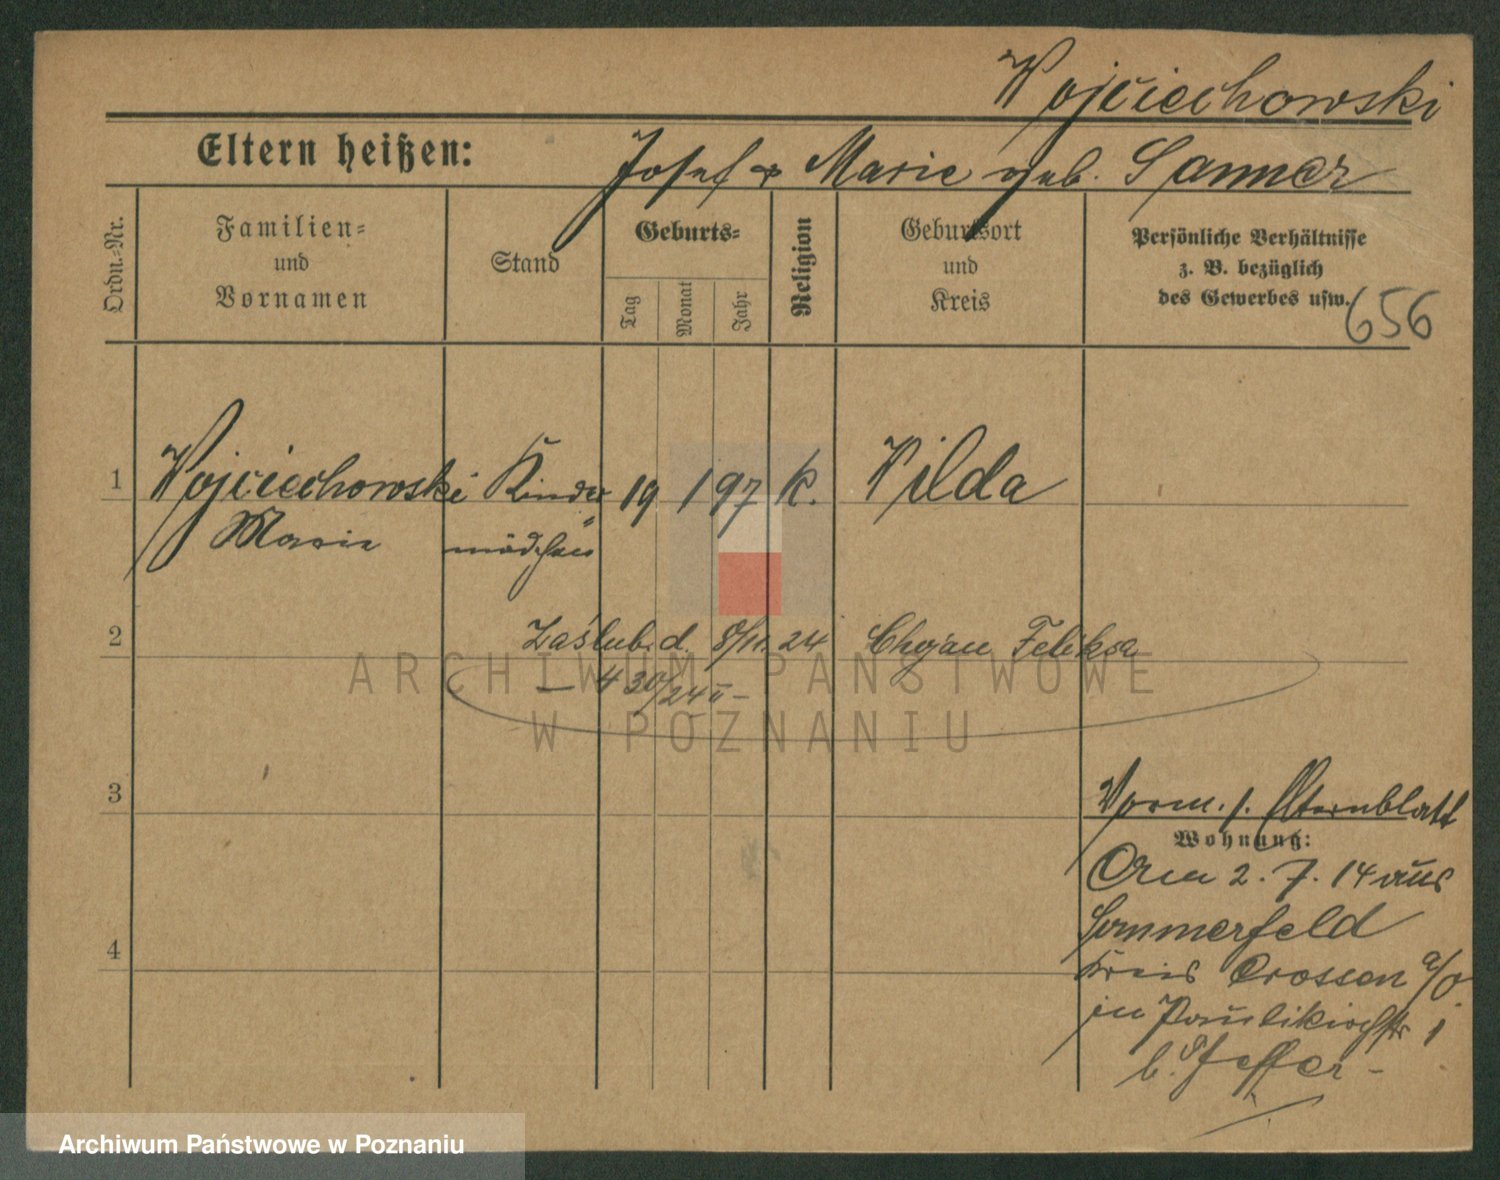 Wojciechowski
Eltern heißen: Josef & Marie geb. Sanner
Ordn.-Nr.
Familien-
und
Vornamen
Stand
Geburts-
Tag
Monat
Jahr
Religion
Geburtsort
und
Kreis
Persönliche Verhältnisse
z. B. bezüglich
des Gewerbes usw.
656
1 Wojciechowski Kinder 19 1 97 K. Wilda
Marie mädchen
2 Zaślub. d. 8/11. 24 Feliksa
— 4 30/24 II —
3
Vorm. s. Elternblatt
Wohnung:
2. 7. 14 aus
Sommerfeld
4
Kreis Crossen a/O
in Paulikirchstr 1
b.
ARCHIWUM PAŃSTWOWE
W POZNANIU
Archiwum Państwowe w Poznaniu